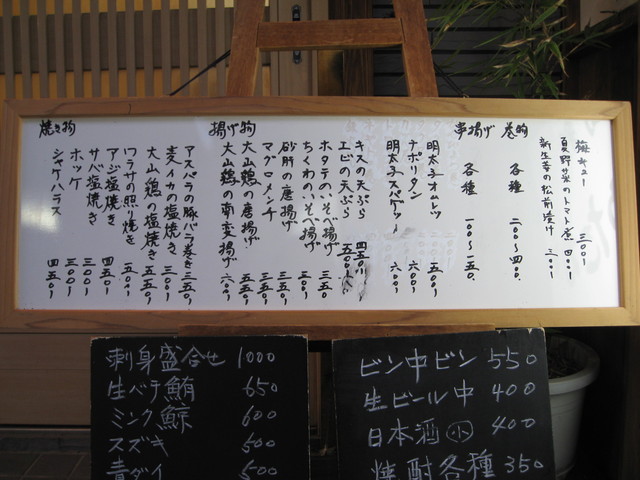 梅キュー 三〇〇
夏野菜のトマト煮 四〇〇
新生姜の松前漬け 三〇〇
巻物
各種 二〇〇〜四〇〇
串揚げ
各種 一〇〇〜一五〇
明太子オムレツ 五〇〇
ナポリタン 六〇〇
明太子スパゲッティ 六〇〇
キスの天ぷら 四五〇
エビの天ぷら 五〇〇
ホタテのいそべ揚げ 三五〇
ちくわのいそべ揚げ 三〇〇
砂肝の唐揚げ 三五〇
マグロメンチ 三五〇
大山鶏の唐揚げ 五五〇
大山鶏の南蛮揚げ 六〇〇
揚げ物
アスパラの豚バラ巻き 三五〇
麦イカの塩焼き 五〇〇
大山鶏の塩焼き 五五〇
ワラサの照り焼き 五〇〇
アジ塩焼き 四五〇
サバ塩焼き 三〇〇
ホッケ 三〇〇
シャケハラス 四五〇
焼き物
刺身盛合せ 1000
生バチ鮪 650
ミンク鯨 600
スズキ 500
青ダイ 500
ビン中ビン 550
生ビール中 400
日本酒 小 400
焼酎各種 350